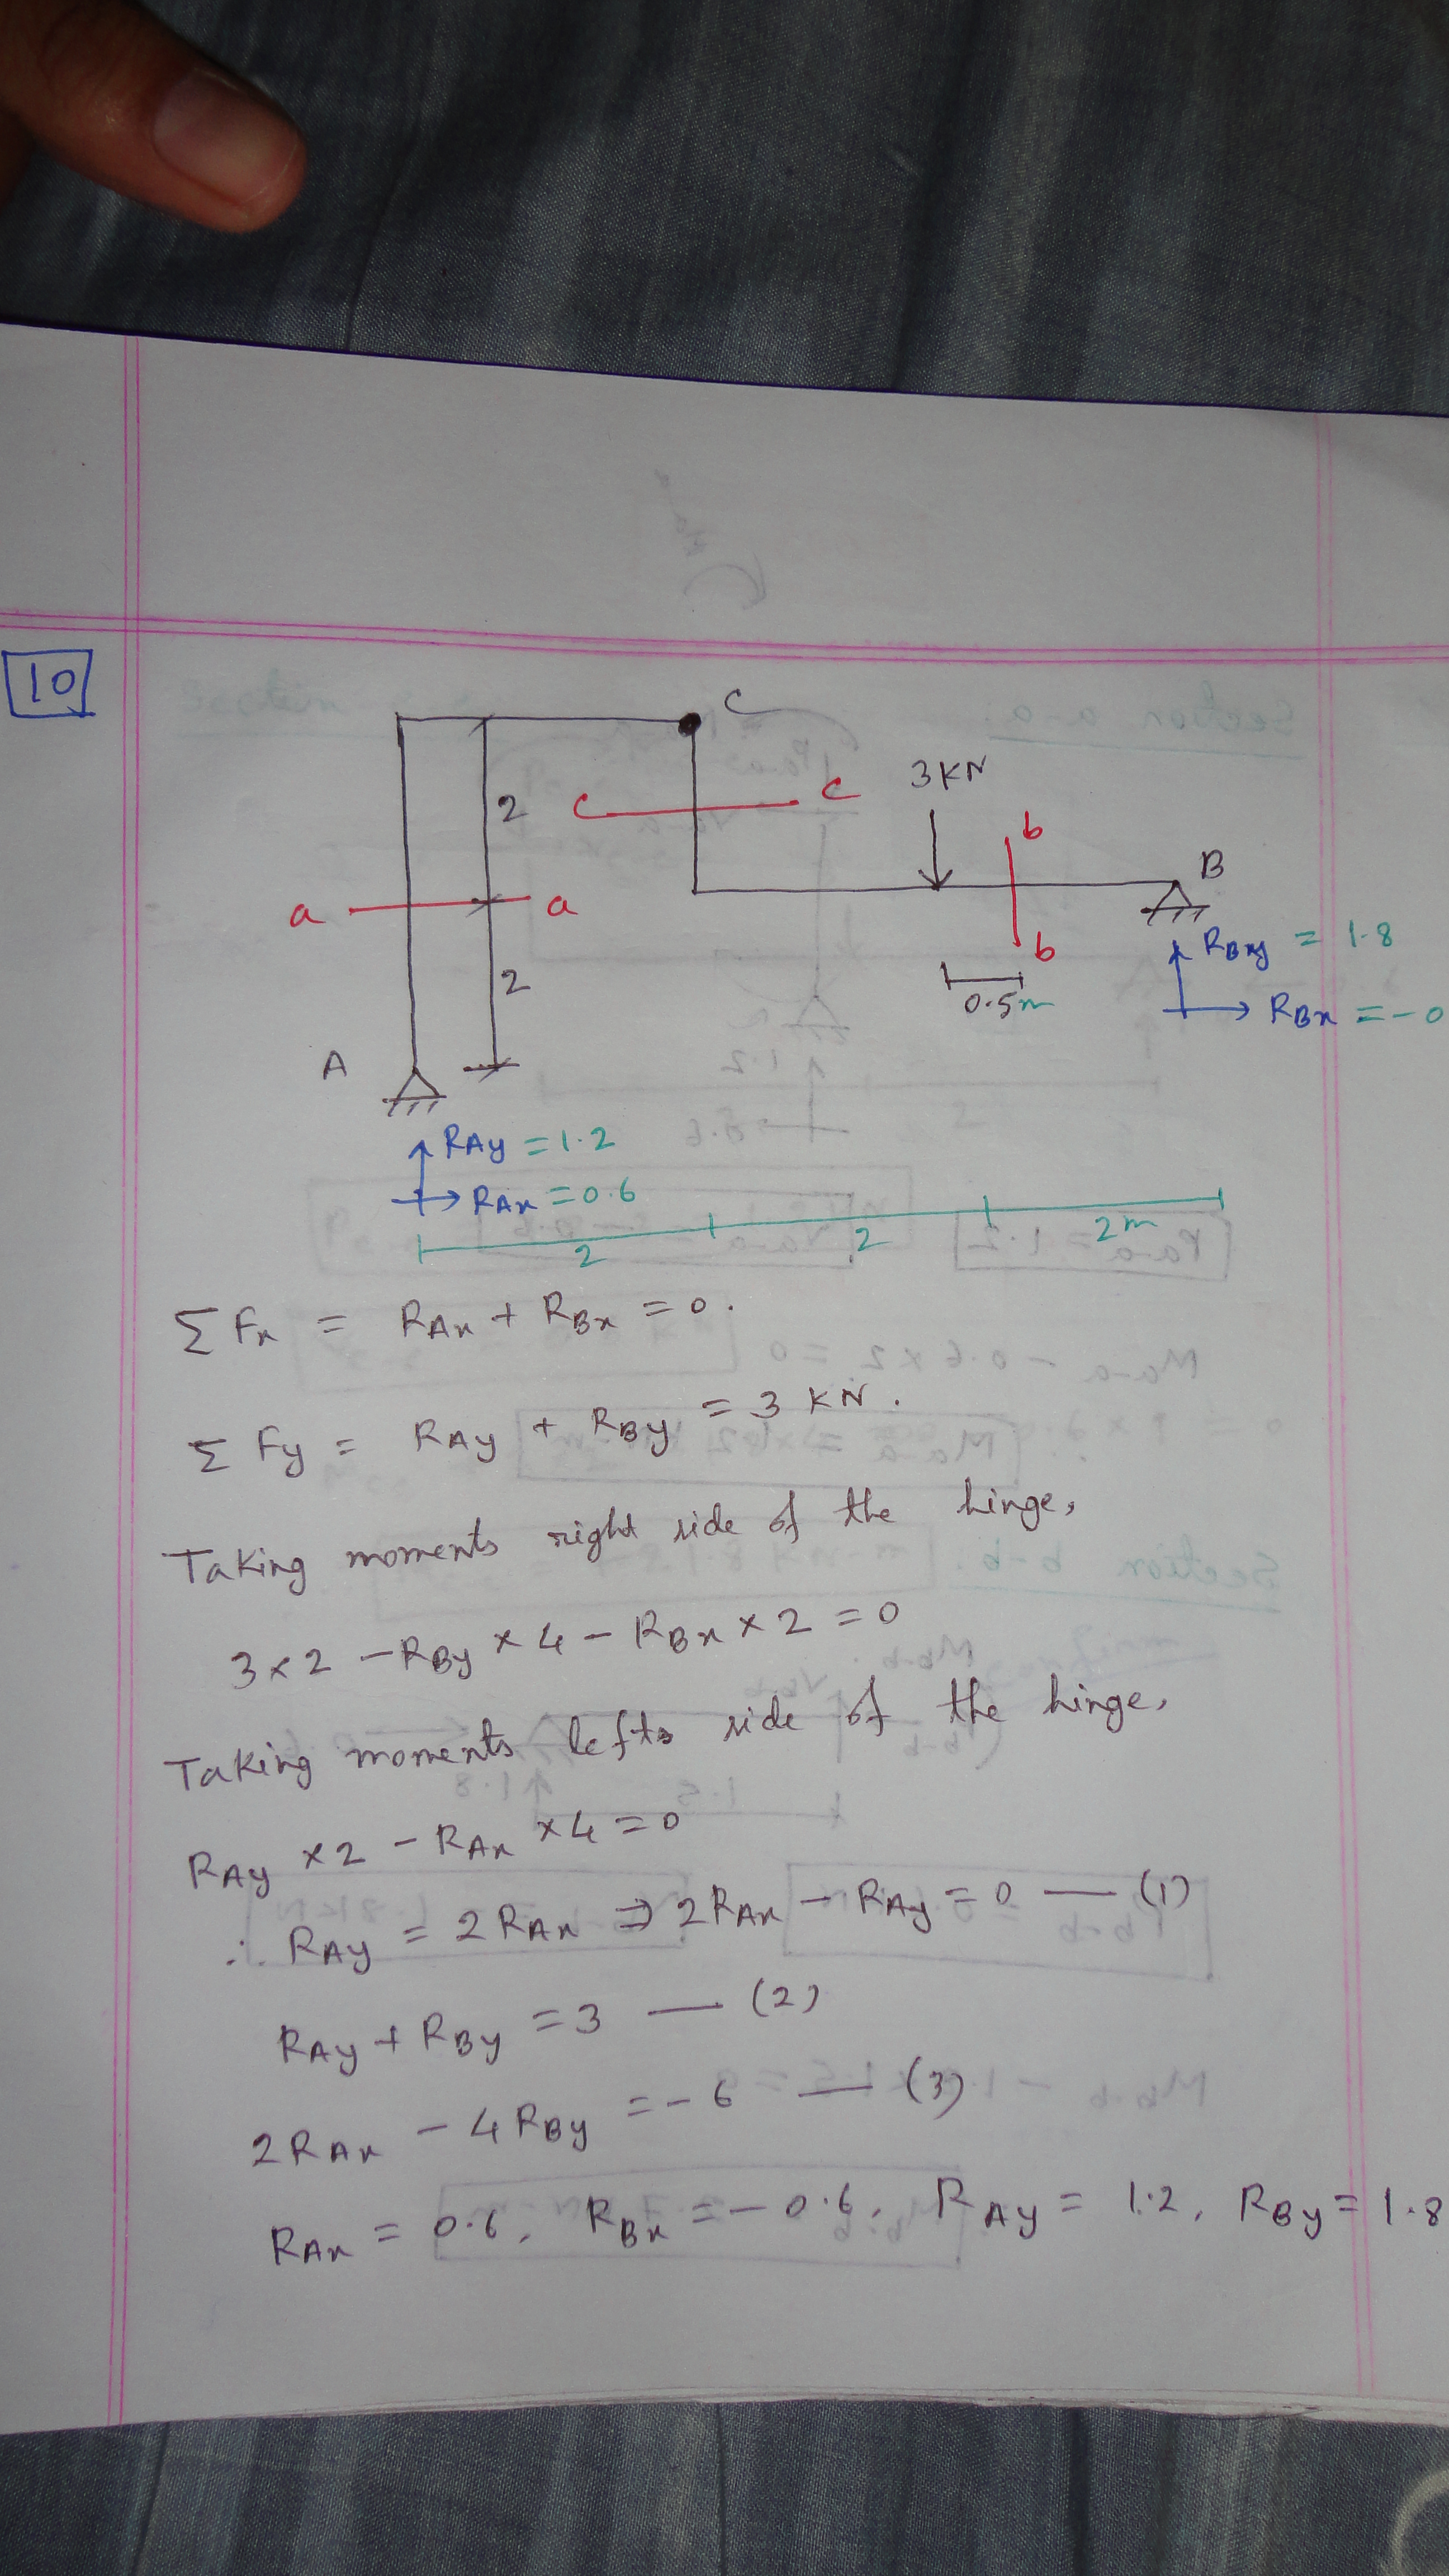 10
C
3KN
2
c c
b
B
a a
b
RBy = 1.8
2
0.5m
RBx = -0
A
RAy = 1.2
RAx = 0.6
2 2 2m
Σ Fx = RAx + RBx = 0.
Σ Fy = RAy + RBy = 3 KN.
Taking moments right side of the hinge,
3x2 - RBy x 4 - RBx x 2 = 0
Taking moments lefts side of the hinge,
RAy x 2 - RAx x 4 = 0
∴ RAy = 2 RAx ⇒ 2RAx - RAy = 0 — (1)
RAy + RBy = 3 — (2)
2RAx - 4RBy = -6 — (3)
RAx = 0.6, RBx = -0.6, RAy = 1.2, RBy = 1.8